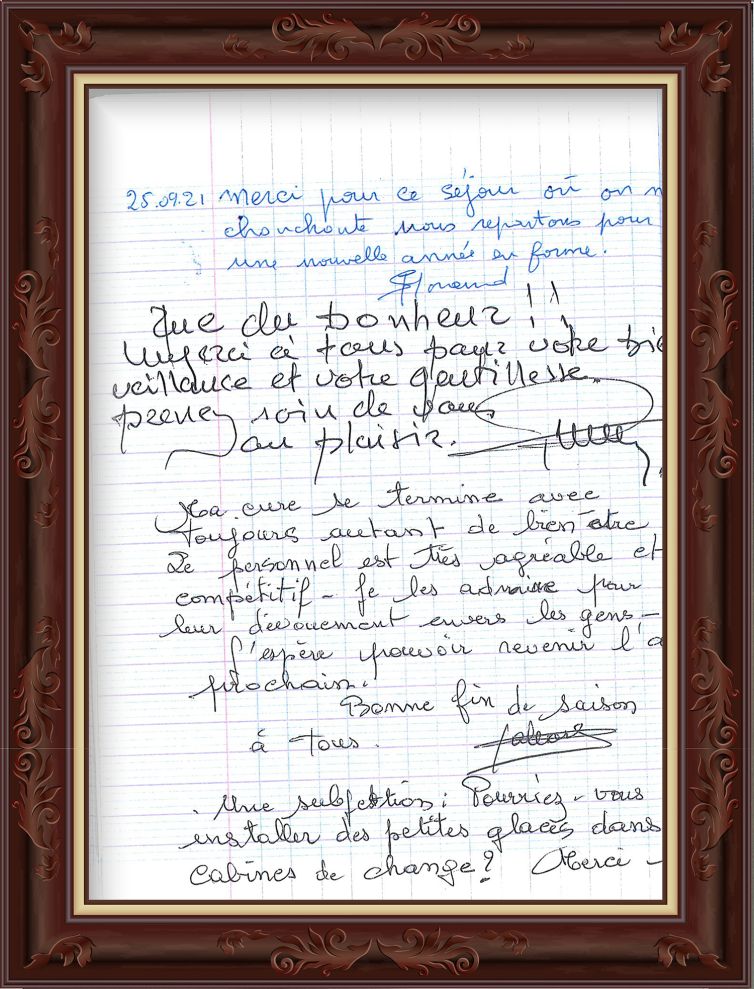 25.09.21 Merci pour ce séjour où on n
chouchoute nous repartons pour
une nouvelle année en forme.
Que du bonheur !!
merci à tous pour votre bie
veillance et votre gentillesse.
prenez soin de vous
au plaisir.
Ma cure se termine avec
toujours autant de bien être
Le personnel est très agréable et
compétitif - Je les admire pour
leur dévouement envers les gens -
J'espère pouvoir revenir l'a
prochain.
Bonne fin de saison
à tous.
Une subjestion : Pourriez-vous
installer des petites glaces dans
cabines de change ? Merci -